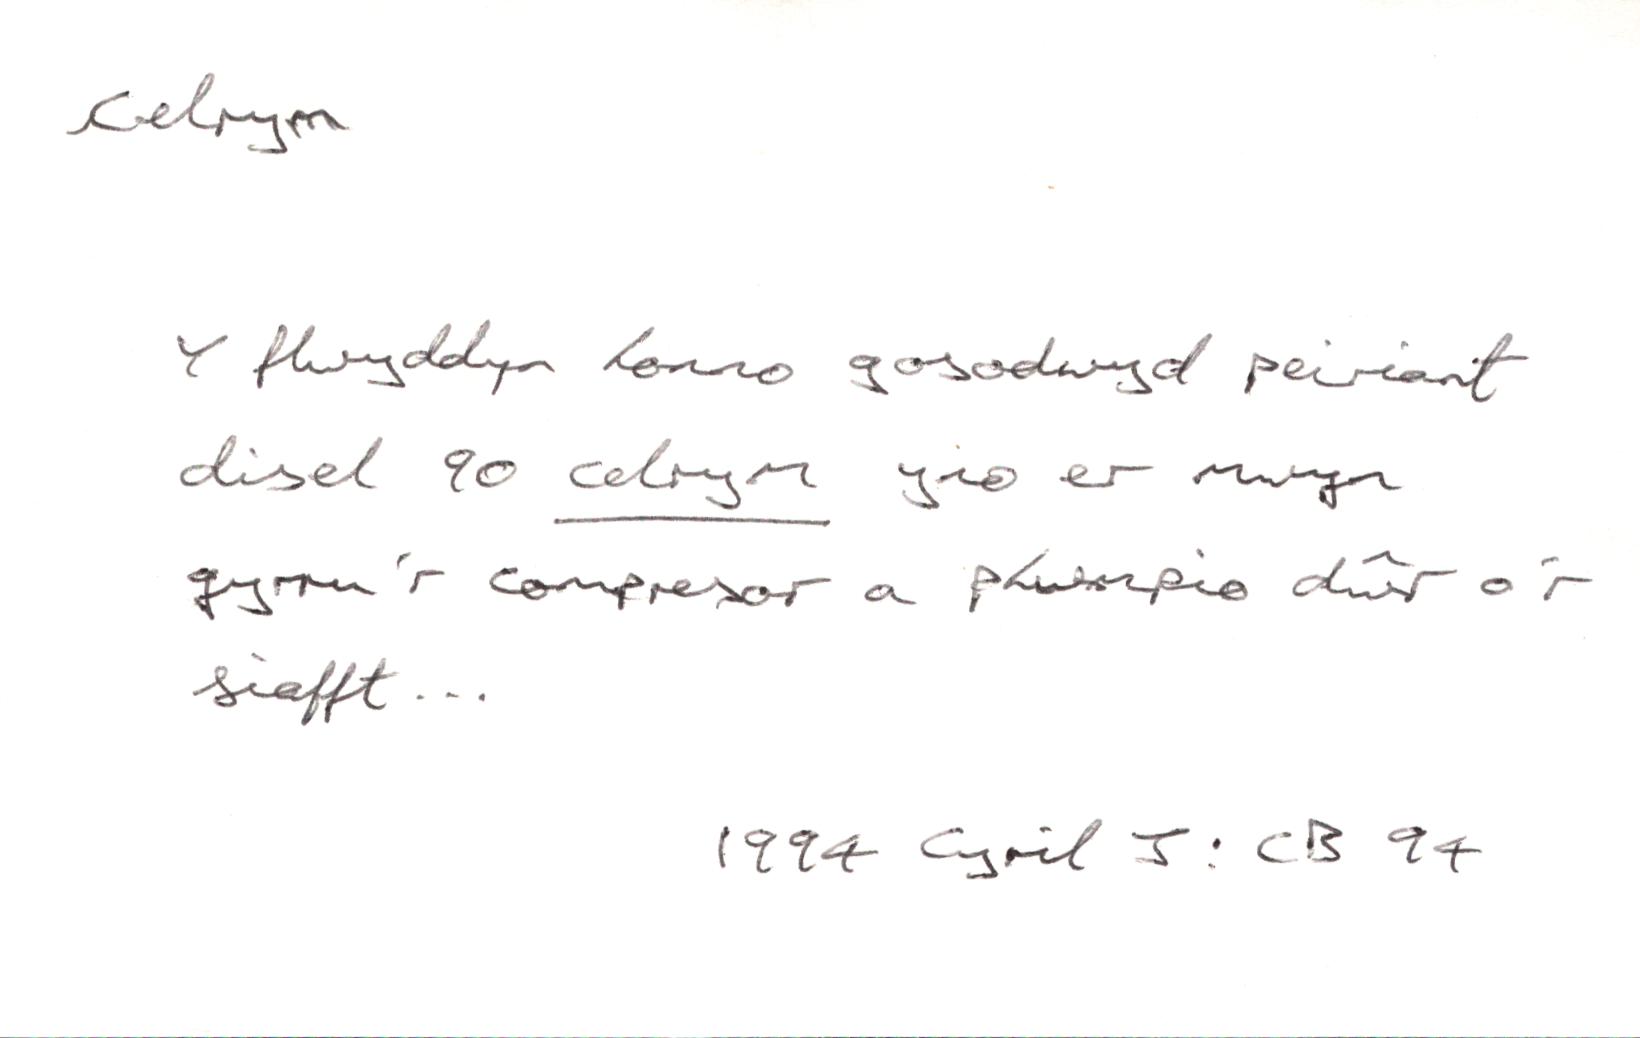 Celrym
Y flwyddyn honno gosodwyd peiriant
disel 90 celrym yno er mwyn
gyrru'r compresor a phwmpio dŵr o'r
siafft...
1994 Cyril J: CB 94